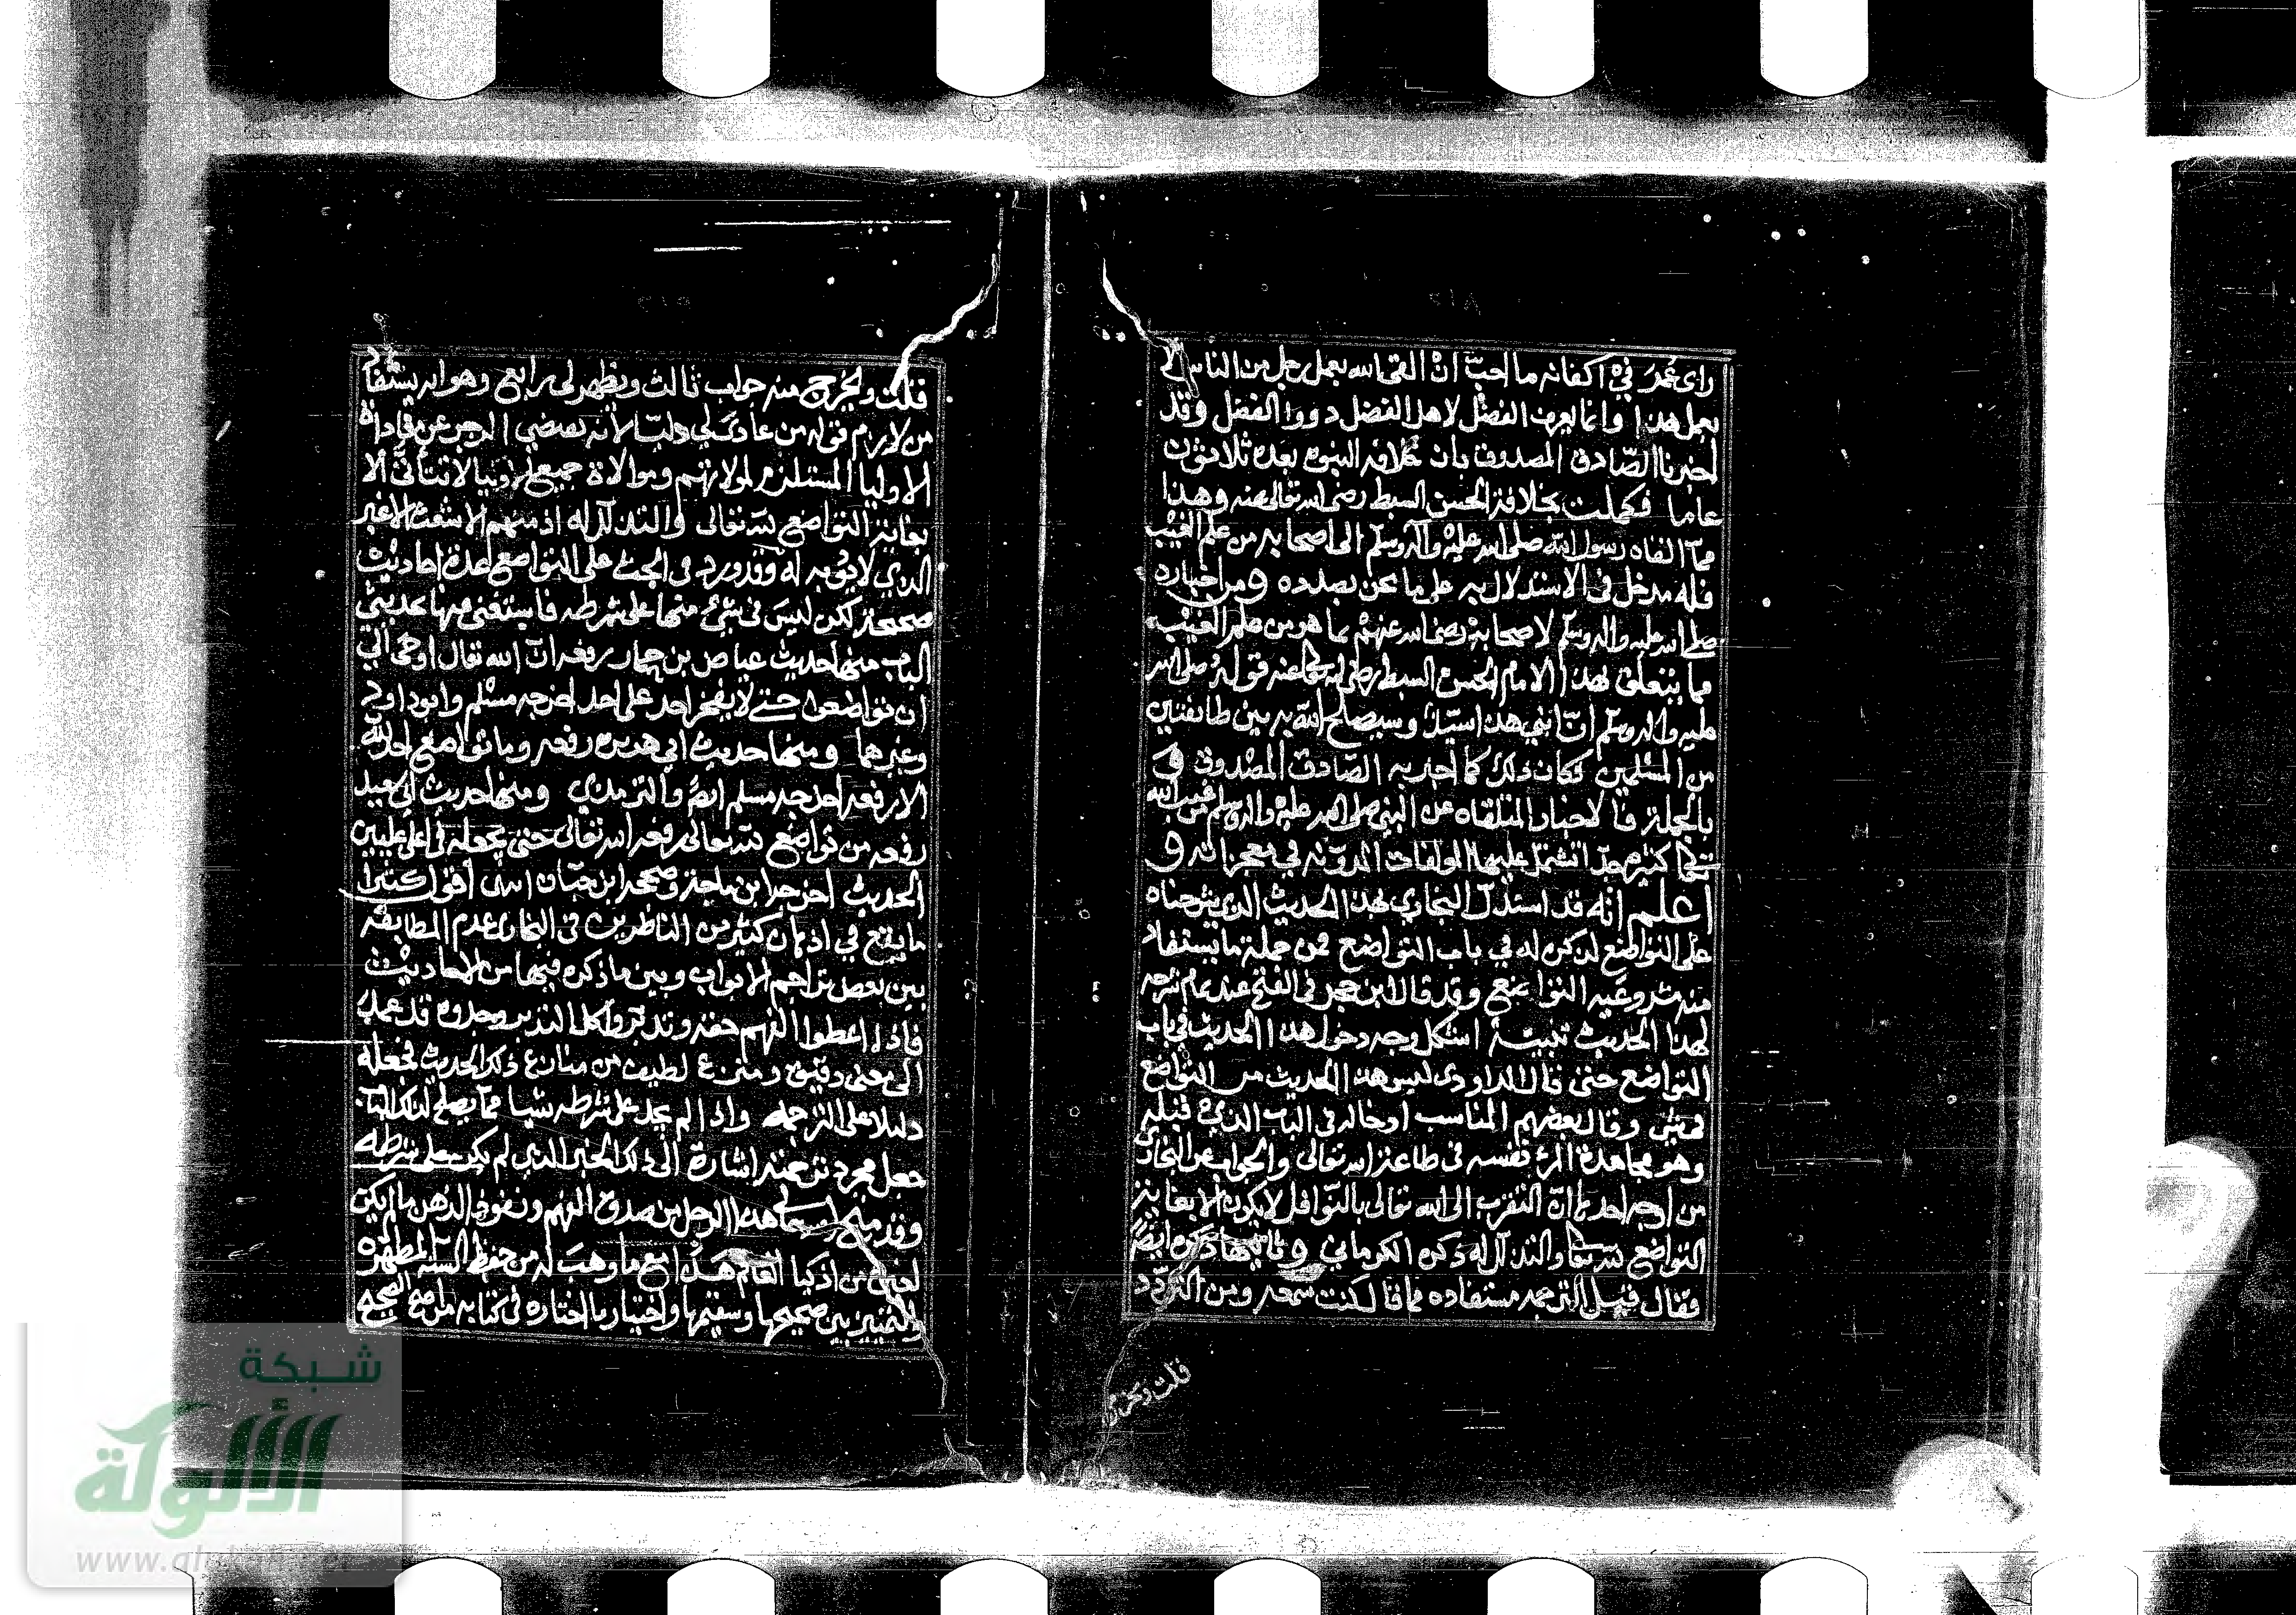 راى عمر في اكفانه ما احب ان القى الله بعمل رجل من الناس الا
بعمل هذا وانما يعرف الفضل لاهل الفضل ذووا الفضل وقد
اخبرنا الصادق المصدوق بان خلافة النبوة بعده ثلاثون
عاما فكملت بخلافة الحسن السبط رضى الله تعالى عنه وهذا
مما القاه رسول الله صلى الله عليه وآله وسلم الى اصحابه من علم الغيب
فله مدخل فى الاستدلال به على ما نحن بصدده ومن اخباره
صلى الله عليه واله وسلم لاصحابه رضى الله عنهم بما هو من علم الغيب
مما يتعلق بهذا الامام الحسن السبط رضى الله عنه قوله صلى الله
عليه واله وسلم ان ابني هذا سيد وسيصلح الله به بين طائفتين
من المسلمين فكان ذلك كما اخبر به الصادق المصدوق و
بالجملة فالاخبار المتلقاه عن النبي صلى الله عليه واله وسلم من غيب الله
كثيره جدا تشتمل عليها المولفات المدونه في معجزاته و
اعلم انه قد استدل البخاري بهذا الحديث الذي شرحناه
على التواضع لذكره له في باب التواضع فمن جملة ما يستفاد
منه مشروعيه التواضع وقد قال ابن حجر فى الفتح عند تمام شرحه
لهذا الحديث تنبيه اشكل وجه دخول هذا الحديث في باب
التواضع حتى قال الداودى ليس هذا الحديث من التواضع
فى شى وقال بعضهم المناسب ادخاله فى الباب الذي قبله
وهو مجاهدة المرء نفسه فى طاعة الله تعالى والجواب عن البخارى
من اوجه احدها ان التقرب الى الله تعالى بالنوافل لا يكون الا بغاية
التواضع لله تعالى والتذلل له ذكره الكرماني وثانيها ذكره ايضا
فقال قيل الترجمه مستفاده مما قال كنت سمعه ومن التردد
قلت ويخرج
قلت ويخرج منه جواب ثالث ويظهر لى رابع وهو انه يستفاد
من لازم قوله من عادى لي وليا لانه يقتضي الزجر عن معاداة
الاوليا المستلزم لموالاتهم وموالاة جميع الاوليا لا تتأتى الا
بغاية التواضع لله تعالى والتذلل له اذ منهم الاشعث الاغبر
الذي لا يوبه له وقد ورد فى الحث على التواضع عدة احاديث
صحيحة لكن ليس فى شئ منها على شرطه فاستغنى عنها بحديثي
الباب منها حديث عياض بن حمار رفعه ان الله تعالى اوحى الي
ان تواضعوا حتى لا يفخر احد على احد اخرجه مسلم وابو داود
وغيرهما ومنها حديث ابي هريره رفعه وما تواضع احد لله
الا رفعه اخرجه مسلم ايضا والترمذي ومنها حديث ابى سعيد
رفعه من تواضع لله تعالى رفعه الله تعالى حتى يجعله فى اعلى عليين
الحديث اخرجه ابن ماجة وصححه ابن حبان انتهى اقول كثيرا
ما يقع في اذهان كثير من الناظرين فى البخارى عدم المطابقه
بين بعض تراجم الابواب وبين ما ذكره فيها من الاحاديث
فاذا اعطوا الفهم حقه وتدبروا كل التدبر وجدوه قد عمد
الى معنى دقيق ومنزع لطيف من منازع ذلك الحديث فجعله
دليلا على الترجمه واذا لم يجد على شرطه شيا مما يصلح لذلك الباب
جعل مجرد ترجمته اشارة الى ذلك الخبر الذي لم يكن على شرطه
وقد منح الله هذا الرجل من صدق الفهم ونفوذ الذهن ما لم يكن
لغيره من اذكيا العالم هذا مع ما وهب له من حفظ السنه المطهره
والتمييز بين صحيحها وسقيمها واختيار ما اختاره فى كتابه من اصح الصحيح
شبكة
الألوكة